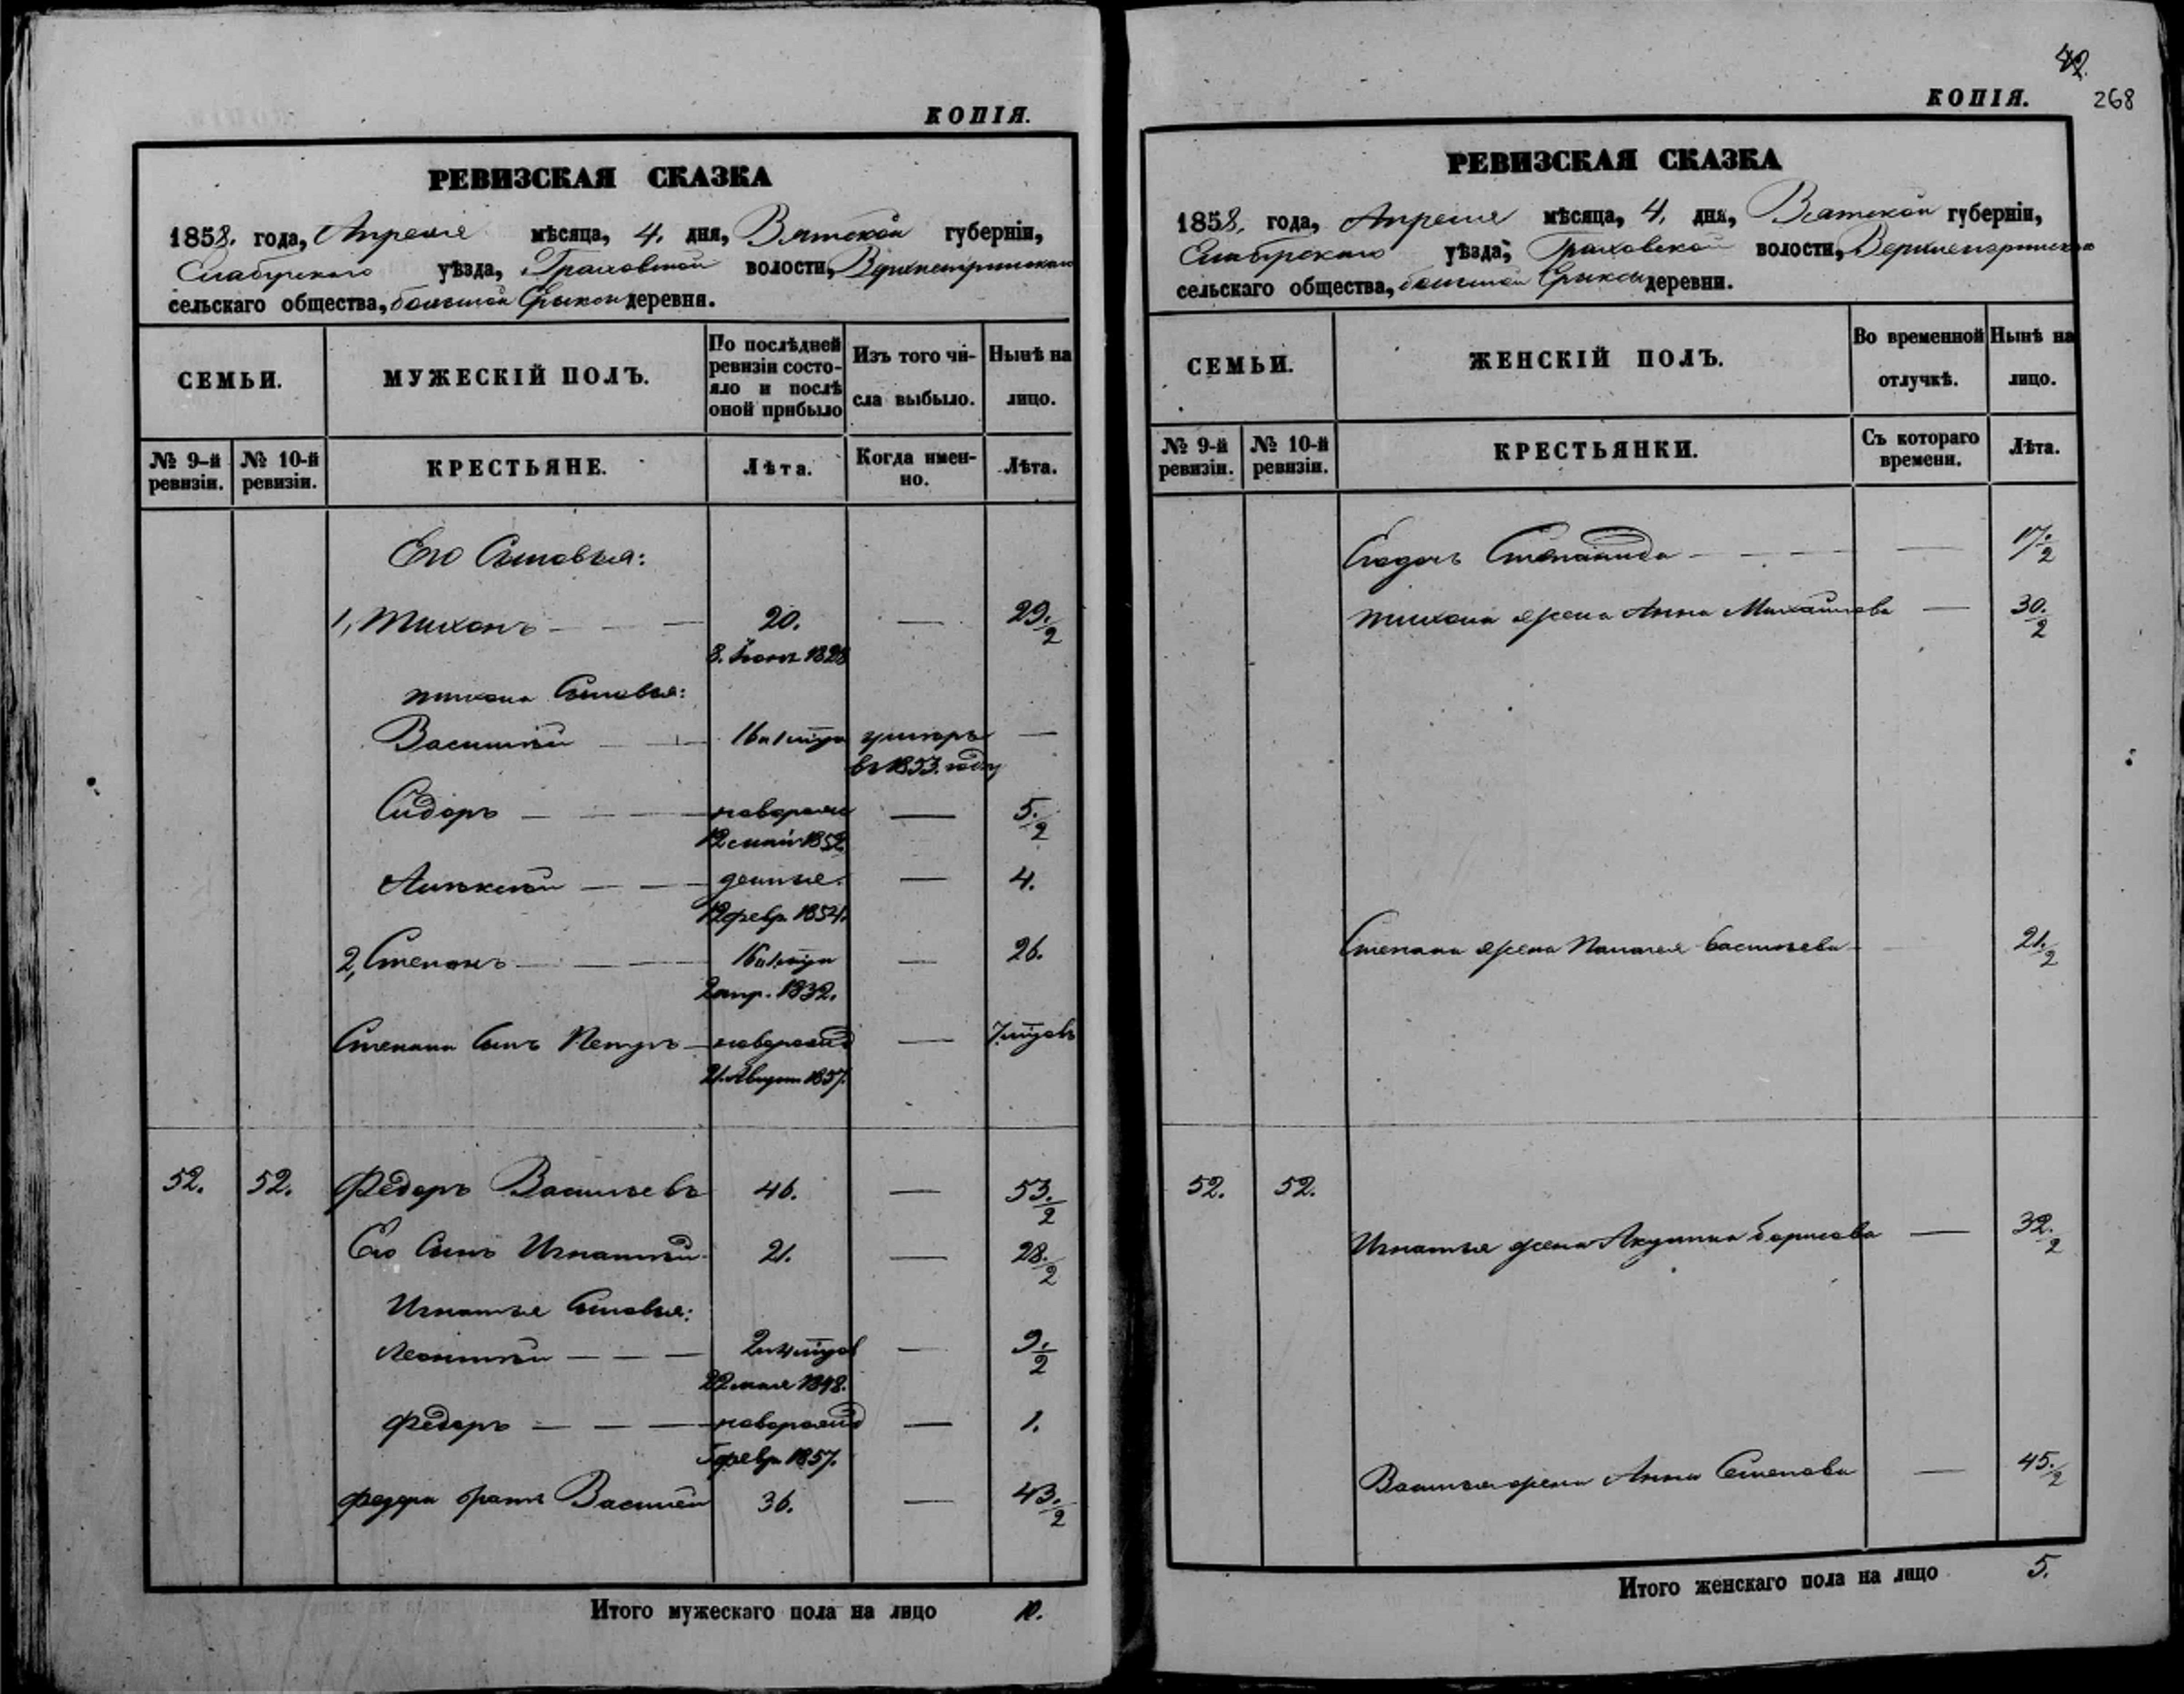 КОПІЯ.
РЕВИЗСКАЯ СКАЗКА
1858. года, Апреля мѣсяца, 4. дня, Вятской губерніи,
Елабугскаго уѣзда, Граховской волости,
сельскаго общества, большой Ерыксы деревня.
СЕМЬИ.
МУЖЕСКІЙ ПОЛЪ.
По послѣдней ревизіи состояло и послѣ оной прибыло
Изъ того числа выбыло.
Нынѣ на лицо.
№ 9-й ревизіи.
№ 10-й ревизіи.
КРЕСТЬЯНЕ.
Лѣта.
Когда именно.
Лѣта.
Его Сыновья:
1, Тихонъ — — — 20. — 29.½
8. 1828
тихона Сыновья:
Василій — — умеръ —
въ 1853. году
Сидоръ — — — новорожд — 5.½
12 1852.
Алексѣй — — — 4.
12 февр. 1854.
2, Степанъ — — — — 26.
2 апр. 1832.
Степана Сынъ Петръ — новорожд — 7 мѣсяцовъ
1857.
52. 52. Федоръ Васильевъ 46. — 53.½
Его Сынъ Игнатій 21. — 28.½
Игнатья Сыновья:
Леонтій — — — — 9.½
22 мая 1848.
Федоръ — — — новорожд — 1.
февр. 1857.
Федора братъ Василій 36. — 43.½
Итого мужескаго пола на лицо 10.
42.
КОПІЯ. 268
РЕВИЗСКАЯ СКАЗКА
1858. года, Апреля мѣсяца, 4. дня, Вятской губерніи,
Елабугскаго уѣзда, Граховской волости,
сельскаго общества, большой Ерыксы деревни.
СЕМЬИ.
ЖЕНСКІЙ ПОЛЪ.
Во временной отлучкѣ.
Нынѣ на лицо.
№ 9-й ревизіи.
№ 10-й ревизіи.
КРЕСТЬЯНКИ.
Съ котораго времени.
Лѣта.
Степанида — — — — 17.½
тихона жена Анна Михайлова — 30.½
Степана жена Палагея Васильева — 21.½
52. 52.
Игнатья жена Акулина Борисова — 32.½
Василья жена Анна Семенова — 45.½
Итого женскаго пола на лицо 5.